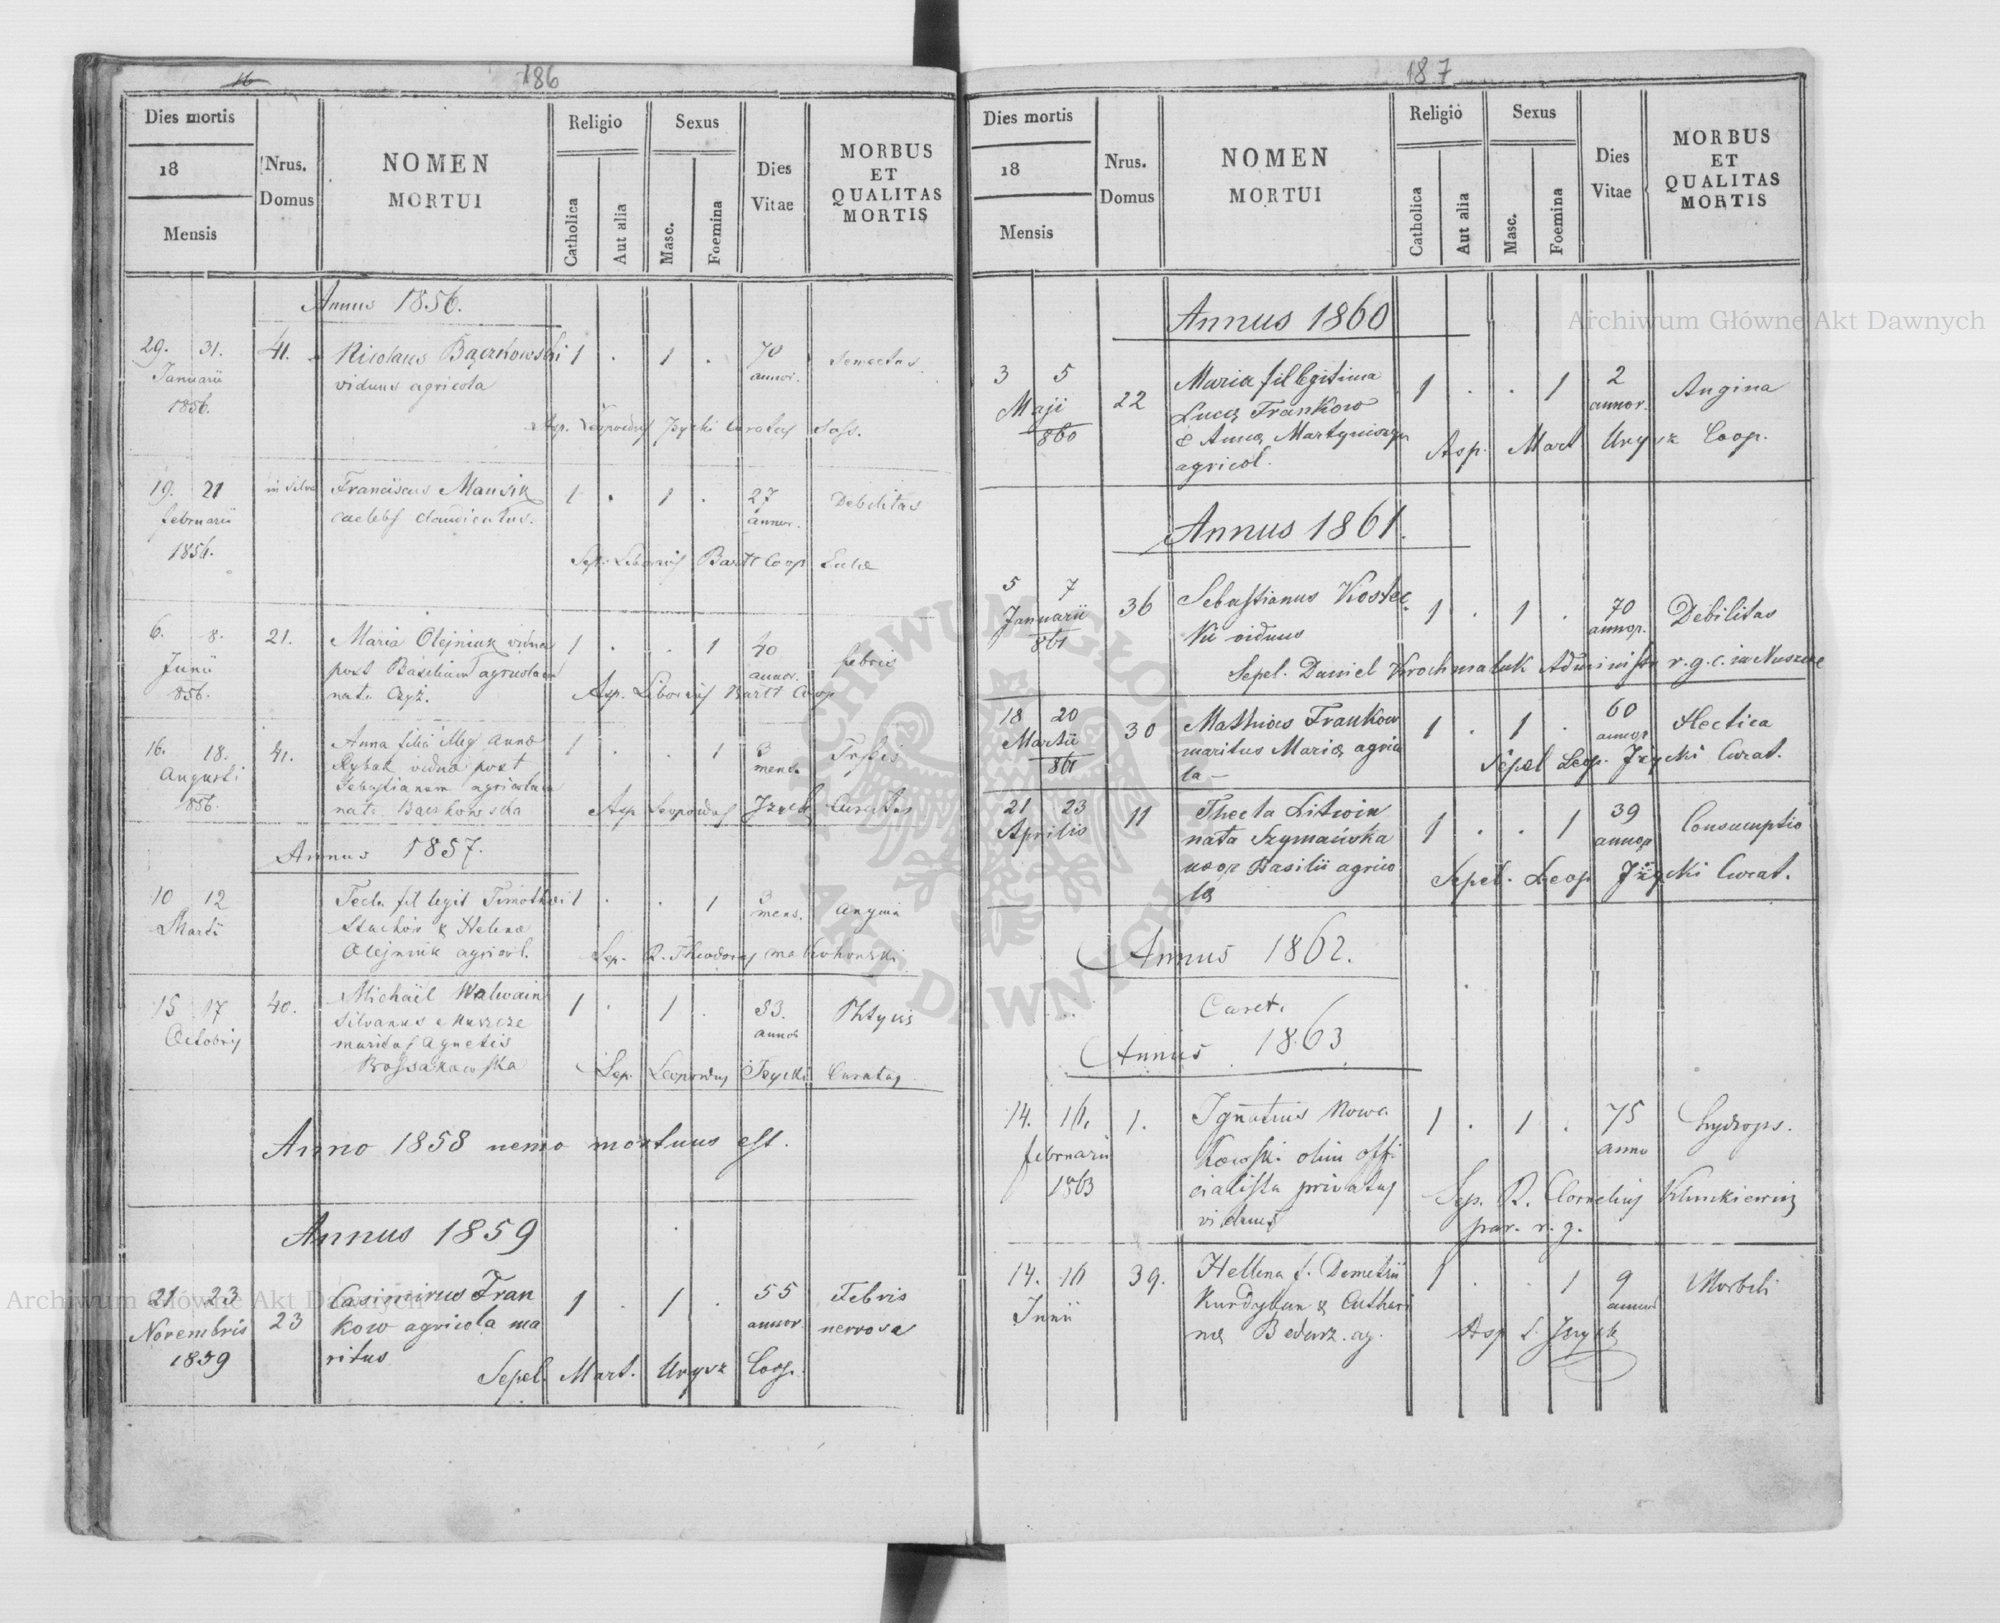 16
186
Dies mortis
18
Mensis
Nrus.
Domus
NOMEN
MORTUI
Religio
Catholica
Aut alia
Sexus
Masc.
Foemina
Dies
Vitae
MORBUS
ET
QUALITAS
MORTIS
Annus 1856.
29. 31. 41. Nicolaus Bączkowski 1 . 1 . 70
Januarii viduus agricola annor.
1856.
Asp. Leopoldus Jzycki Curatus
19. 21 in silva Franciscus 1 . 1 . 27 Debilitas
februarii caelebs annor.
1856.
Bartt Coop
6. 8. 21. Maria Olejniuk vidua 1 . . 1 40 febris
Junii post Basilium agricolam annor.
856. nata
Asp. Liborius Bartt Coop
16. 18. 41. Anna 1 . . 1 3
Augusti Rybak vidua post mens.
856. Sebastianum agricolam
nata Baczkowska
Asp Leopoldus Jzycki Curatus
Annus 1857.
10 12 Tecla fil legit Timothei 1 . . 1 3 angina
Martii Stachów & Helena mens.
Olejniuk agricol.
Sep. R. Theodorus
15 17 40. Michael 1 . 1 . 33.
Octobris Silvanus annor
maritus Agnetis
Sep. Leopoldus Jzycki Curatus
Anno 1858 nemo mortuus est.
Annus 1859
21 23 23 Casimirus Fran 1 . 1 . 55 Febris
Novembris kow agricola ma annor. nervosa
1859 ritus
Sepel. Mart. Urysz Coop.
187
Dies mortis
18
Mensis
Nrus.
Domus
NOMEN
MORTUI
Religio
Catholica
Aut alia
Sexus
Masc.
Foemina
Dies
Vitae
MORBUS
ET
QUALITAS
MORTIS
Annus 1860
3 5 22 Maria fil legitima 1 . . 1 2 Angina
Maji Lucæ Frankow annor.
860 & Annæ
agricol.
Asp. Mart Urysz Coop.
Annus 1861.
5 7 36 Sebastianus Kostec 1 . 1 . 70 Debilitas
Januarii kii viduus annor.
861
Sepel. Daniel Krochmaluk r. g. c. in
18 20 30 Mathias Frankow 1 . 1 . 60 Hectica
Martii maritus Mariæ agrico annor
861 la –
Sepel Leop. Jzycki Curat.
21 23 11 Thecla Litwin 1 . . 1 39 Consumptio
Aprilis nata Szymańska annor
uxor Basilii agrico
læ
Sepel. Leop Jzycki Curat.
Annus 1862.
Caret.
Annus 1863
14. 16. 1. Ignatius Nowa 1 . 1 . 75 hydrops.
februarii kowski olim offi anno
1863 cialista privatus
viduus
Sep. R. Cornelius
par. r. g.
14. 16 39. Hellena f. Demetrii 1 . . 1 9 Morbili
Junii & Cathari
næ
Asp L. Jzycki
Archiwum Główne Akt Dawnych
Archiwum Główne Akt Dawnych
ARCHIWUM GŁÓWNE
· AKT DAWNYCH ·